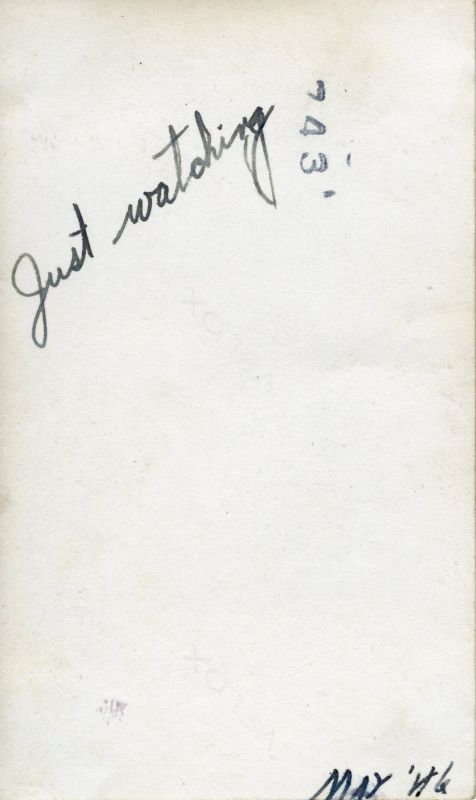 Just watching
743
Mar '46